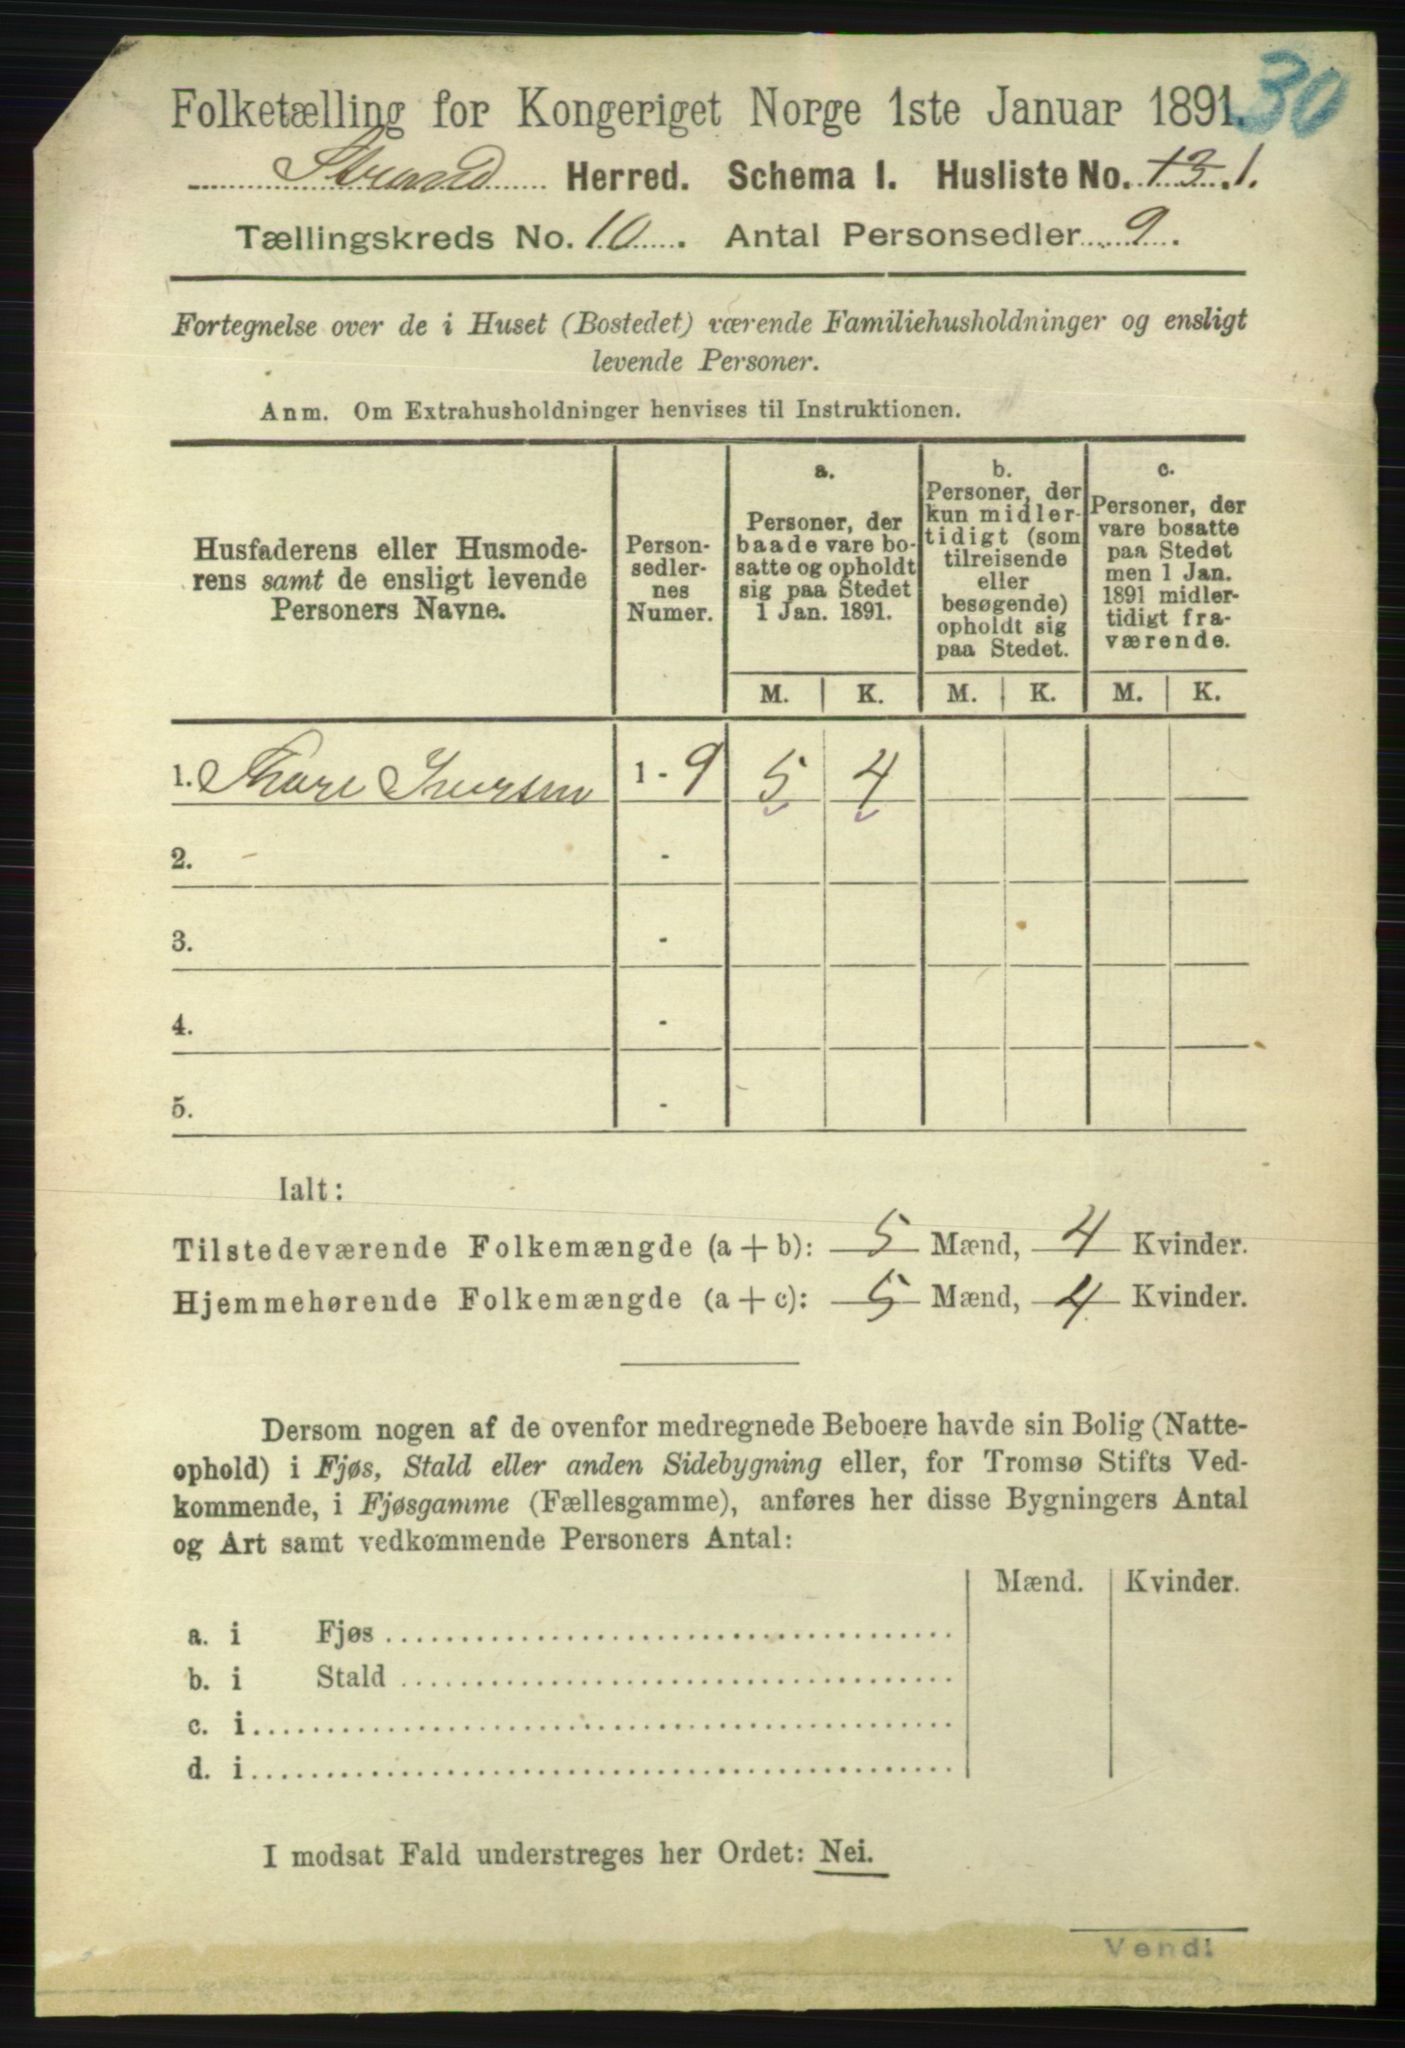 30
Folketælling for Kongeriget Norge 1ste Januar 1891.
Strand Herred. Schema I. Husliste No. 13 1.
Tællingskreds No. 10. Antal Personsedler 9.
Fortegnelse over de i Huset (Bostedet) værende Familiehusholdninger og ensligt
levende Personer.
Anm. Om Extrahusholdninger henvises til Instruktionen.
Husfaderens eller Husmode-
rens samt de ensligt levende
Personers Navne.
Person-
sedler-
nes
Numer.
a.
Personer, der
baade vare bo-
satte og opholdt
sig paa Stedet
1 Jan. 1891.
b.
Personer, der
kun midler-
tidigt (som
tilreisende
eller
besøgende)
opholdt sig
paa Stedet.
c.
Personer, der
vare bosatte
paa Stedet
men 1 Jan.
1891 midler-
tidigt fra-
værende.
M. K. M. K. M. K.
1. Thore Iversen 1 - 9 5 4
2. -
3. -
4. -
5. -
Ialt:
Tilstedeværende Folkemængde (a + b): 5 Mænd, 4 Kvinder.
Hjemmehørende Folkemængde (a + c): 5 Mænd, 4 Kvinder.
Dersom nogen af de ovenfor medregnede Beboere havde sin Bolig (Natte-
ophold) i Fjøs, Stald eller anden Sidebygning eller, for Tromsø Stifts Ved-
kommende, i Fjøsgamme (Fællesgamme), anføres her disse Bygningers Antal
og Art samt vedkommende Personers Antal:
Mænd. Kvinder.
a. i Fjøs
b. i Stald
c. i
d. i
I modsat Fald understreges her Ordet: Nei.
Vend!